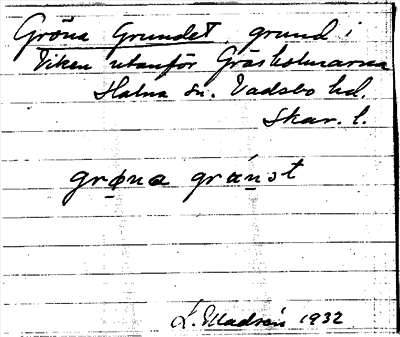 Gröna Grundet, grund i
Viken utanför Gräsholmarna
Halna sn. Vadsbo hd.
Skar. l.
grø̣na grán̠ɔt
L. Madsén 1932